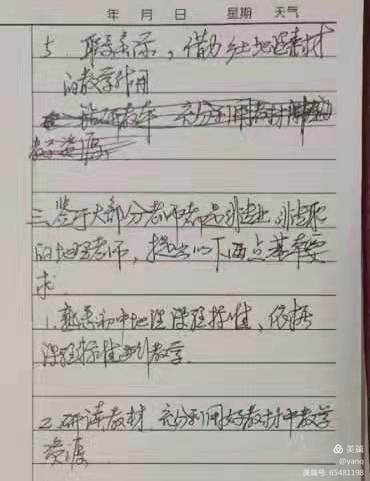 年 月 日 星期 天气
5. 联系实际，借助乡土地理素材
的教学作用
钻研教本 充分利用教材中的
教学资源。
三、鉴于大部分老师都是非专业、非专职
的地理老师，提出以下两点基本要
求
1. 熟悉初中地理课程标准、依据
课程标准进行教学.
2. 研读教材 充分利用好教材中教学
资源
美篇
@yano
美篇号: 65481198